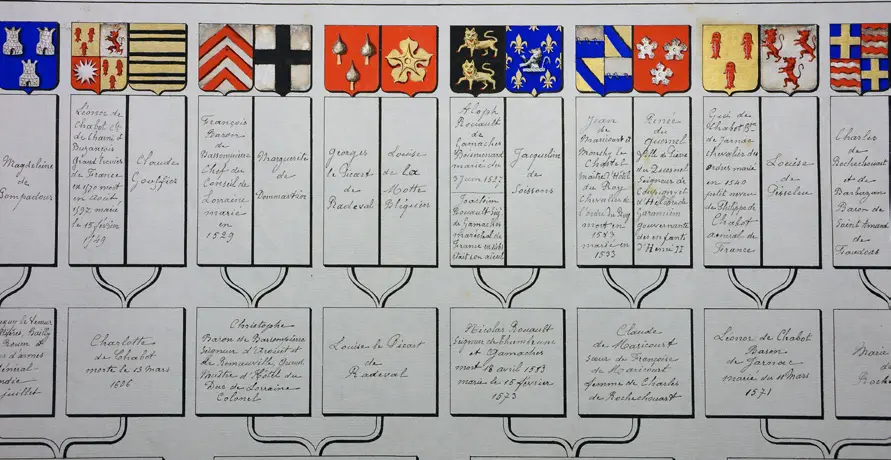 Magdeleine
de
Pompadour
Léonor de
Chabot
de Charni et
Buzançois
Grand Ecuier
de France
en 1570 mort
en Aout
1597 marié
le 15 février
1549
Claude
Gouffier
François
Baron
de
Bassompierre
Chef du
Conseil de
Lorraine
marié
en
1529
Marguerite
de
Dommartin
Georges
le Picart
de
Radeval
Louise
de La
Motte
Bléquin
Aloph
Rouault
de
Gamaches
marié du
3 Juin 1527
Joachim
Rouault Sig
de Gamaches
maréchal de
France en 1461
était son aieul
Jacqueline
de
Soissons
Jean
de
Maricourt et
Monchy le
Chatel
Maitre d'Hôtel
du Roy
Chevalier de
mort en
1583
marié en
1533
Renée
du
Quesnel
fille de
du Quesnel
Seigneur de
Coupigny et
d'
gouvernante
des enfants
d'Henri II
Gui de
Chabot Bon
de Jarnac
chevalier des
Ordres marié
en 1540
petit neveu
de Philippe de
Chabot
amiral de
France
Louise
de
Pisseleu
Charles
de
Rochechouart
et de
Barbazan
Baron de
Saint Amand
de
Faudoas
le Veneur
Bailly
Rouen et
d'armes
Général
juillet
Charlotte
de Chabot
morte le 15 Mars
1606
Christophe
Baron de Bassompierre
Seigneur d'Arouet et
de Remauville, Grand
Maitre d'Hôtel du
Duc de Lorraine
Colonel
Louise le Picart
de
Radeval
Nicolas Rouault
Seigneur de
et Gamaches
mort 18 avril 1583
marié le 15 février
1573
Claude
de Maricourt
sœur de Françoise
de Maricourt
femme de Charles
de Rochechouart
Leonor de Chabot
Baron
de Jarnac
marié du 11 Mars
1571
Marie
de
Roche